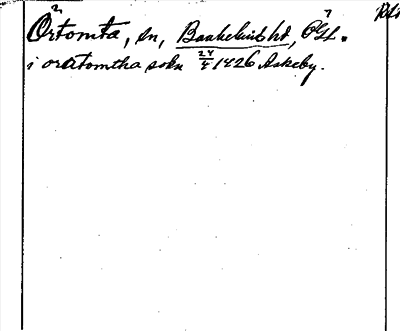 Örtomta, sn, Bankekinds hd, ÖGL.
i orætomtha sokn 24/4 1426 Askeby.